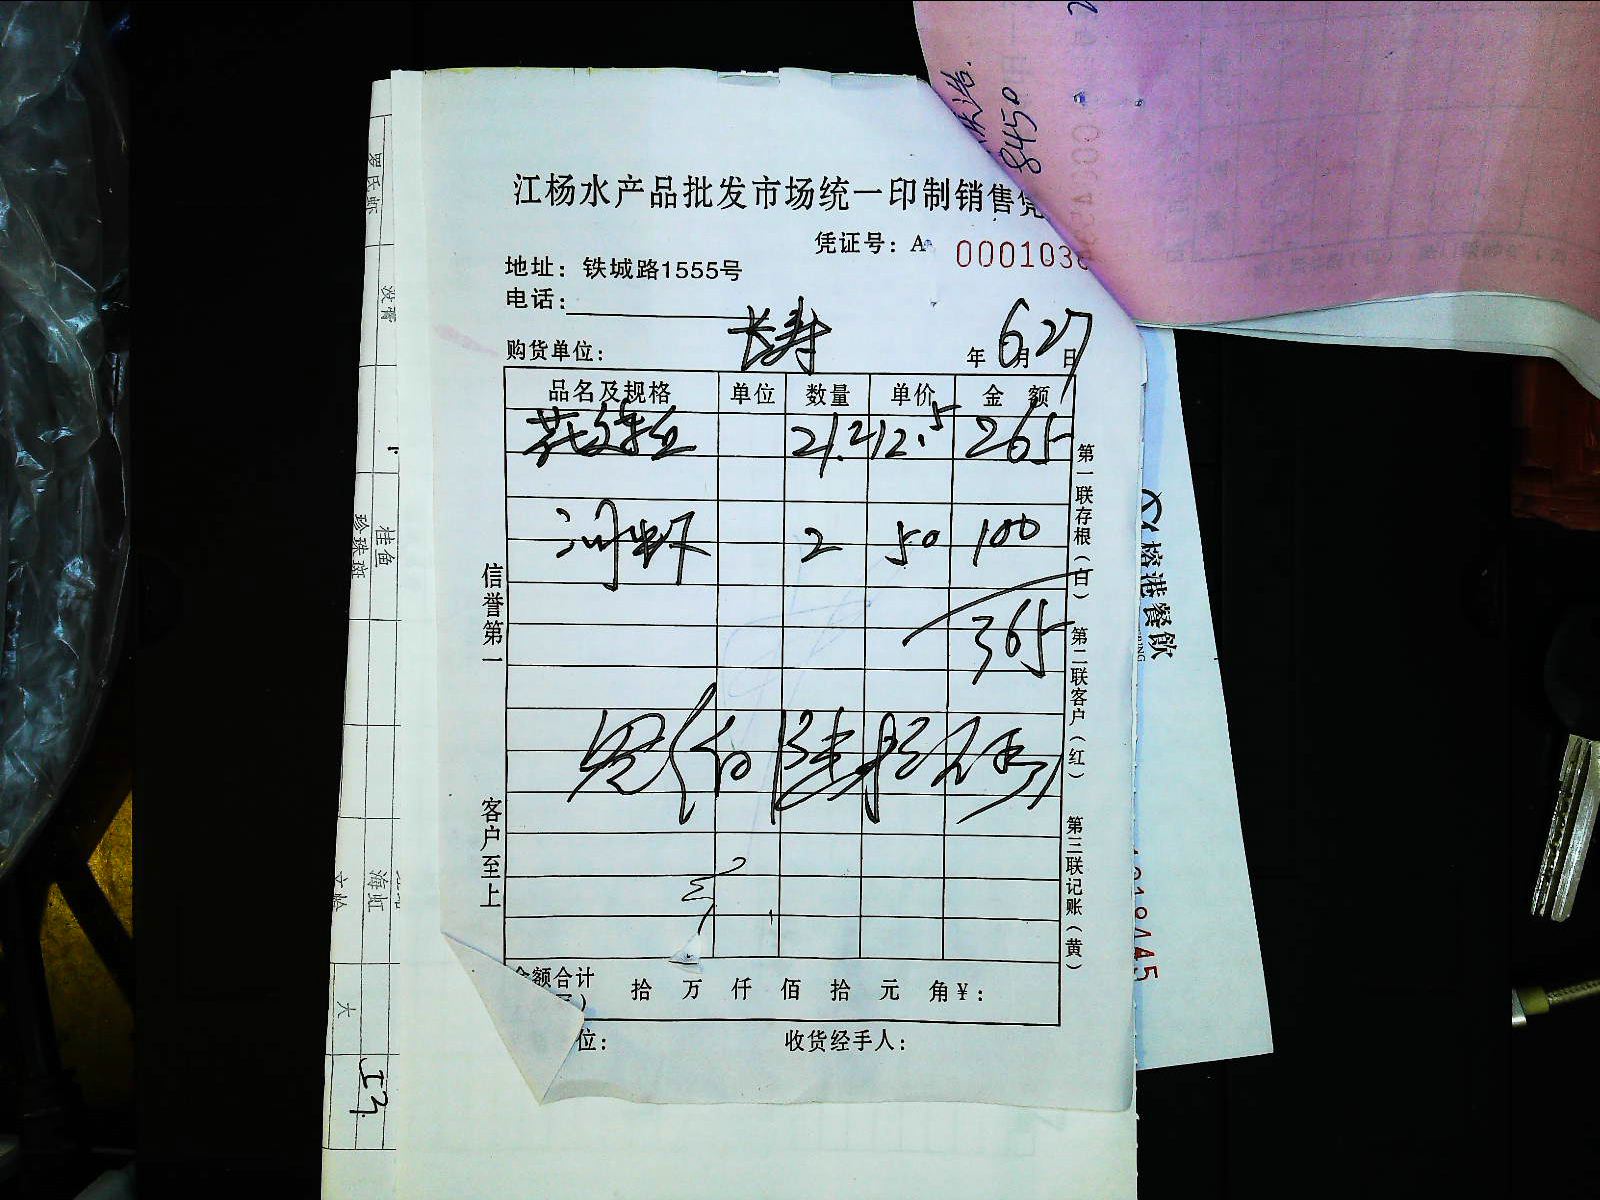 江杨水产品批发市场统一印制销售凭
凭证号：A 0001036
地址：铁城路1555号
电话：
购货单位： 长寿 年 6月27日
品名及规格 单位 数量 单价 金额
21.2 12.5 265
河虾 2 50 100
365
叁佰陆拾伍
金额合计
拾 万 仟 佰 拾 元 角 ¥：
位： 收货经手人：
信誉第一 客户至上
第一联存根（白） 第二联客户（红） 第三联记账（黄）
8450
榕港餐飲
罗氏虾
桂鱼
珍珠斑
海虹
大